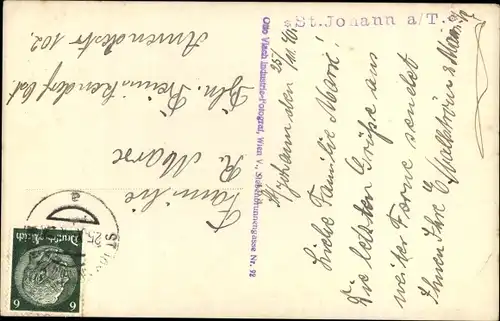 St. Johann a/T.
St. Johann den 25/11.40.
Liebe Familie Marx!
Die letzten Grüße aus
weiter Ferne sendet
Ihnen Ihre
Otto Vlach Industrie-Fotograf, Wien V., Siebenbrunnengasse Nr. 92
Familie
R. Marx
Bln. Reinickendorf Ost
102
Deutsches Reich
6
6